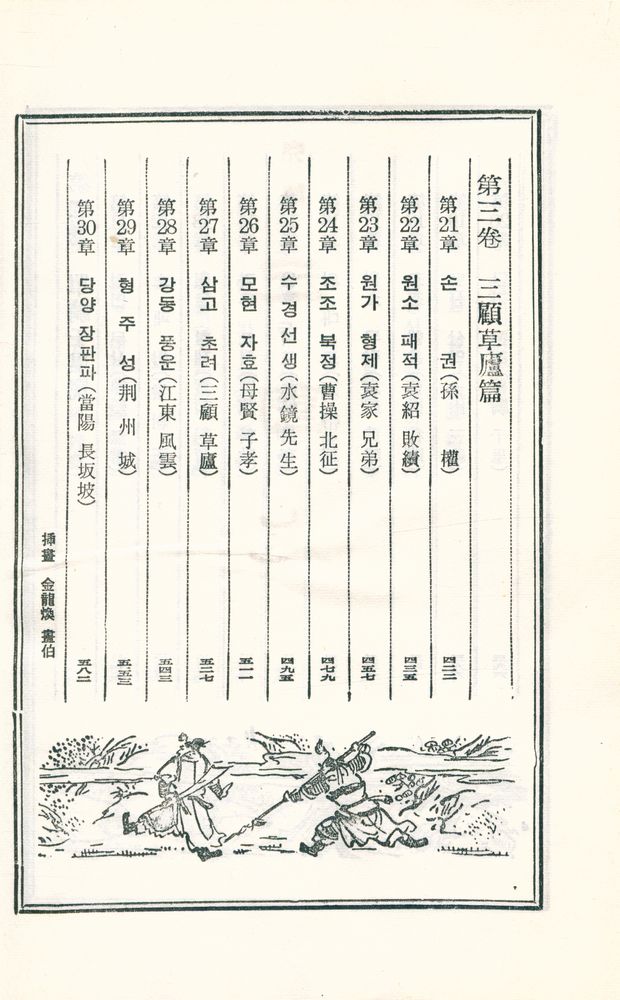 第三卷 三顧草廬篇
第21章 손 권(孫 權) 四二二
第22章 원소 패적(袁紹 敗績) 四三五
第23章 원가 형제(袁家 兄弟) 四五七
第24章 조조 북정(曹操 北征) 四七九
第25章 수경선생(水鏡先生) 四九五
第26章 모현 자효(母賢 子孝) 五一一
第27章 삼고 초려(三顧 草廬) 五二七
第28章 강동 풍운(江東 風雲) 五四三
第29章 형 주 성(荆 州 城) 五五三
第30章 당양 장판파(當陽 長坂坡) 五八二
挿畫 金龍煥 畫伯